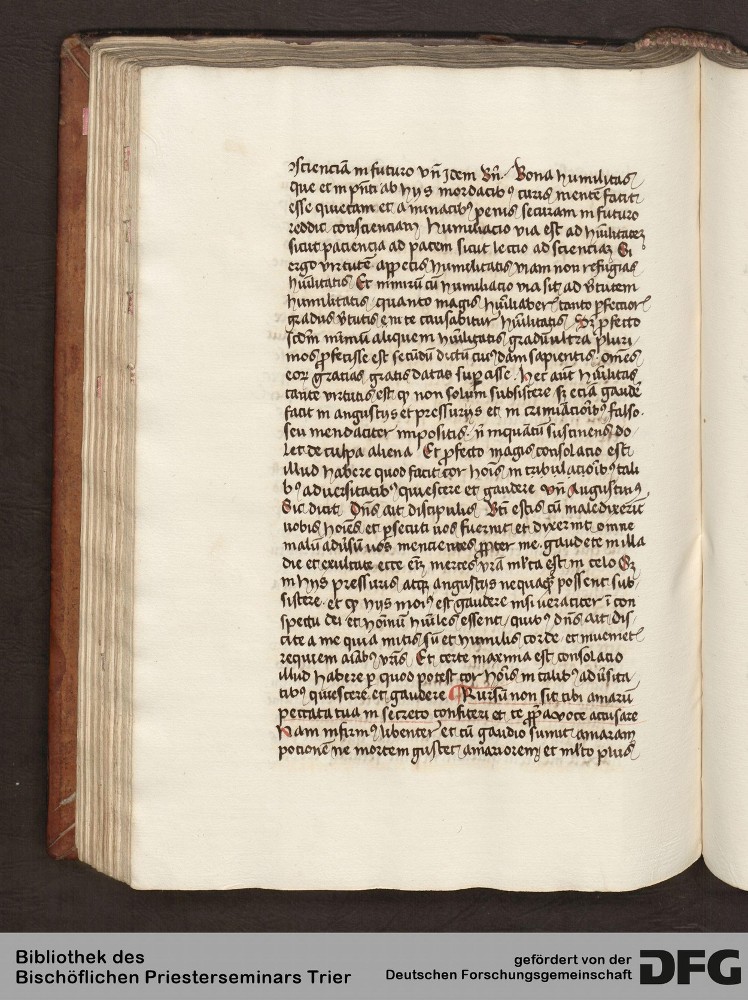 ↄscienciā in futuro vn̄ Idem Bn̄. Bona humilitas
que et in pn̄ti ab hijs mordacibꝰ curis mentē facit
esse quietam et a minacibꝰ penis securam in futuro
reddit conscienciam Humiliacio via est ad hūilitatē
sicut paciencia ad pacem sicut leccio ad scienciaꝫ Si
ergo virtutē appetis humilitatis viam non refugias
hūilitatis Et nimirū cū humiliacio via sit ad v̾tutem
humilitatis quanto magis hūiliaber̾ tanto ꝑfectior̾
gradus v̾tutis in te causabitur hūilitatis ꝓfecto
minimū aliquem hūilitatis gradū ultra pluri
mos ꝓfecisse est secundū dictū cuiꝰdam sapientis oīnes
eoꝝ gratias gratis datas supasse. Hec aūt hūilitas
tante virtutis est ꝙ non solum subsistere sꝫ eciā gaudē
facit in angustijs et pressurijs et in criminacōibꝰ falso.
seu mendaciter impositis. n̄ inquātū sustinens do
let de culpa aliena Et ꝓfecto magis consolatio est
illud habere quod facit cor hoīs in tribulacōibꝰ tali
bꝰ aduersitatibꝰ quiescere et gaudere vn̄ Augustinꝰ
Sic dicit Dn̄s ait discipulis Bt̄i estis cū maledixerīt
uobis hoīes et ꝑsecuti uos fuerint et dixerint omne
malū adūsū uos mencientes ꝓpter me. gaudete in illa
die et exultate ecce em̄ merces vr̄a ml̄ta est in celo Qꝫ
in hijs pressuris atqꝫ angustijs nequaqꝫ possent sub
sistere et ꝙ hijs moiꝰ est gaudere nisi veraciter ī con
spectu dei et hominū hūiles essent quibꝰ dn̄s ait dis
cite a me quia mitis sū et humilis corde et inuemet̾
requiem aīabꝰ vr̄is Et certe maxima est consolacio
illud habere ꝑ quod potest cor hoīs in talibꝰ adūsita
tibꝰ quiescere et gaudere Rursū non sit tibi amarū
peccata tua in secreto confiteri et te ꝓpa voce accusare
Nam infirmꝰ libenter et cū gaudio sumit amaram
pocionē ne mortem gustet amariorem et ml̄to plus
Bibliothek des
Bischöflichen Priesterseminars Trier
gefördert von der
Deutschen Forschungsgemeinschaft
DFG